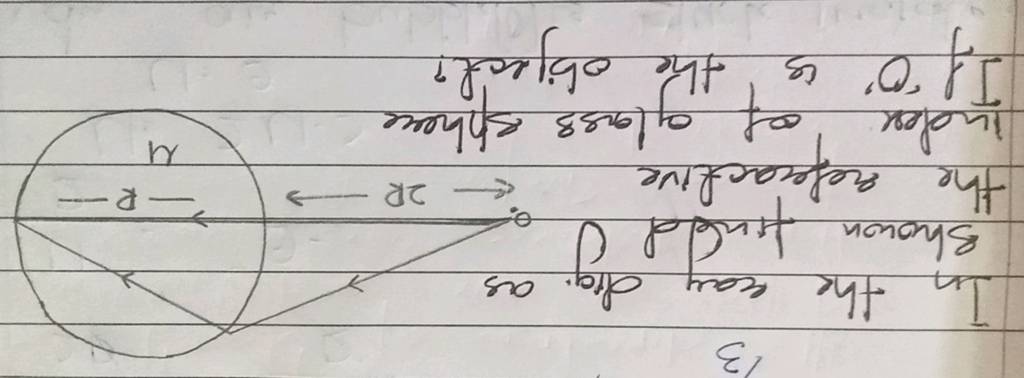 13
In the ray dig. as
shown find
the refractive
index of glass sphere
If 'O' is the object?
O
← 2R →
— R —
μ